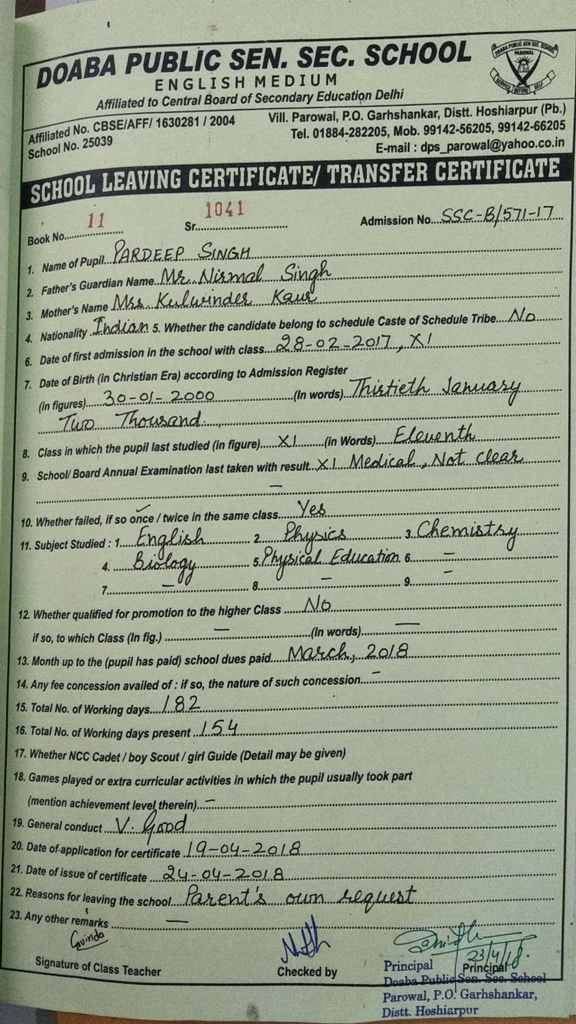 DOABA PUBLIC SEN. SEC. SCHOOL
ENGLISH MEDIUM
Affiliated to Central Board of Secondary Education Delhi
Affiliated No. CBSE/AFF/ 1630281 / 2004
School No. 25039
Vill. Parowal, P.O. Garhshankar, Distt. Hoshiarpur (Pb.)
Tel. 01884-282205, Mob. 99142-56205, 99142-66205
E-mail : dps_parowal@yahoo.co.in
SCHOOL LEAVING CERTIFICATE/ TRANSFER CERTIFICATE
Book No. 11 Sr. 1041 Admission No. SSC-B/571-17
1. Name of Pupil PARDEEP SINGH
2. Father's Guardian Name Mr. Nirmal Singh
3. Mother's Name Mrs Kulwinder Kaur
4. Nationality Indian 5. Whether the candidate belong to schedule Caste of Schedule Tribe No
6. Date of first admission in the school with class 28-02-2017, XI
7. Date of Birth (in Christian Era) according to Admission Register
(in figures) 30-01-2000 (In words) Thirtieth January
Two Thousand
8. Class in which the pupil last studied (in figure) XI (in Words) Eleventh
9. School/ Board Annual Examination last taken with result XI Medical, Not clear
10. Whether failed, if so once / twice in the same class Yes
11. Subject Studied : 1. English 2. Physics 3. Chemistry
4. Biology 5. Physical Education 6. —
7. — 8. — 9. —
12. Whether qualified for promotion to the higher Class No
if so, to which Class (In fig.) — (In words) —
13. Month up to the (pupil has paid) school dues paid March, 2018
14. Any fee concession availed of : if so, the nature of such concession —
15. Total No. of Working days 182
16. Total No. of Working days present 154
17. Whether NCC Cadet / boy Scout / girl Guide (Detail may be given)
18. Games played or extra curricular activities in which the pupil usually took part
(mention achievement level therein) —
19. General conduct V. Good
20. Date of application for certificate 19-04-2018
21. Date of issue of certificate 24-04-2018
22. Reasons for leaving the school Parent's own request
23. Any other remarks —
Govinda
23/4/18
Signature of Class Teacher Checked by Principal Principal
Doaba Public Sen. Sec. School
Parowal, P.O. Garhshankar,
Distt. Hoshiarpur